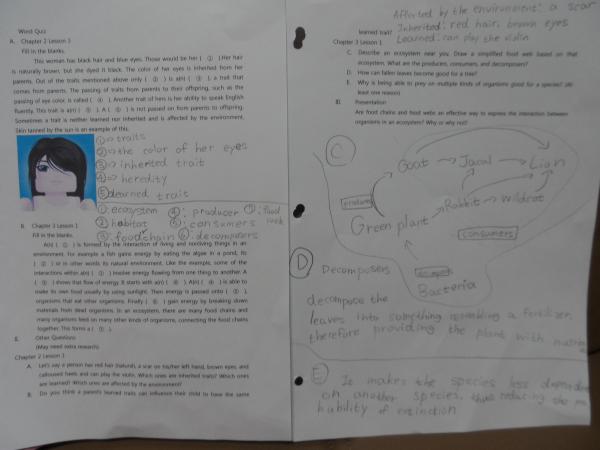 Word Quiz
A. Chapter 2 Lesson 3
Fill in the blanks.
This woman has black hair and blue eyes. Those would be her ( ① ). Her hair
is naturally brown, but she dyed it black. The color of her eyes is inherited from her
parents. Out of the traits mentioned above only ( ② ) is a(n) ( ③ ), a trait that
comes from parents. The passing of traits from parents to their offspring, such as the
passing of eye color, is called ( ④ ). Another trait of hers is her ability to speak English
fluently. This trait is a(n) ( ⑤ ). A ( ⑤ ) is not passed on from parents to offspring.
Sometimes a trait is neither learned nor inherited and is affected by the environment.
Skin tanned by the sun is an example of this.
①⇒ traits
②⇒ the color of her eyes
③⇒ inherited trait
④⇒ heredity
⑤ learned trait
①: ecosystem ④: producer ⑦: food web
② habitat ⑤: consumers
③: food chain ⑥: decomposers
B. Chapter 3 Lesson 1
Fill in the blanks.
A(n) ( ① ) is formed by the interaction of living and nonliving things in an
environment. For example a fish gains energy by eating the algae in a pond, its
( ② ) or in other words its natural environment. Like the example, some of the
interactions within a(n) ( ① ) involve energy flowing from one thing to another. A
( ③ ) shows that flow of energy. It starts with a(n) ( ④ ). A(n) ( ④ ) is able to
make its own food usually by using sunlight. Then energy is passed onto ( ⑤ ),
organisms that eat other organisms. Finally ( ⑥ ) gain energy by breaking down
materials from dead organisms. In an ecosystem, there are many food chains and
many organisms feed on many other kinds of organisms, connecting the food chains
together. This forms a ( ⑦ ).
II. Other Questions
(May need extra research)
Chapter 2 Lesson 3
A. Let's say a person has red hair (natural), a scar on his/her left hand, brown eyes, and
calloused heels and can play the violin. Which ones are inherited traits? Which ones
are learned? Which ones are affected by the environment?
B. Do you think a parent's learned traits can influence their child to have the same
learned trait?
Affected by the environment: a scar
Inherited: red hair, brown eyes
Learned: can play the violin
Chapter 3 Lesson 1
C. Describe an ecosystem near you. Draw a simplified food web based on that
ecosystem. What are the producers, consumers, and decomposers?
D. How can fallen leaves become good for a tree?
E. Why is being able to prey on multiple kinds of organisms good for a species? (At
least one reason)
III. Presentation
Are food chains and food webs an effective way to express the interaction between
organisms in an ecosystem? Why or why not?
C
Goat → Jacal → Lion
Rabbit → Wildcat
Green plant
consumers
Bacteria
D Decomposers
decompose the
leaves into something resembling a fertilizer,
therefore providing the plant with
E It makes the species less
on another species, thus reducing the
of extinction